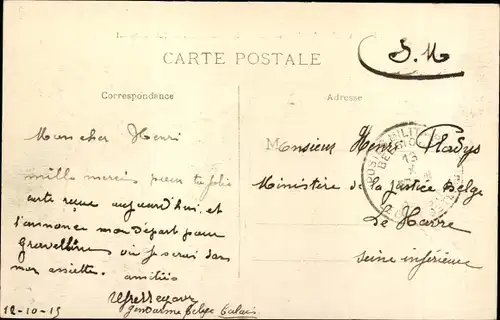 CARTE POSTALE
S.M
Correspondance
Adresse
Mon cher Henri
mille mercis pour ta jolie
carte reçue aujourd'hui et
t'annonce mon départ pour
Gravelines où je serai dans
mon assiette.
amitiés
Gendarme belge Calais
12-10-15
Monsieur Henri Pladys
Ministère de la Justice Belge
Le Havre
Seine inférieure
13
X